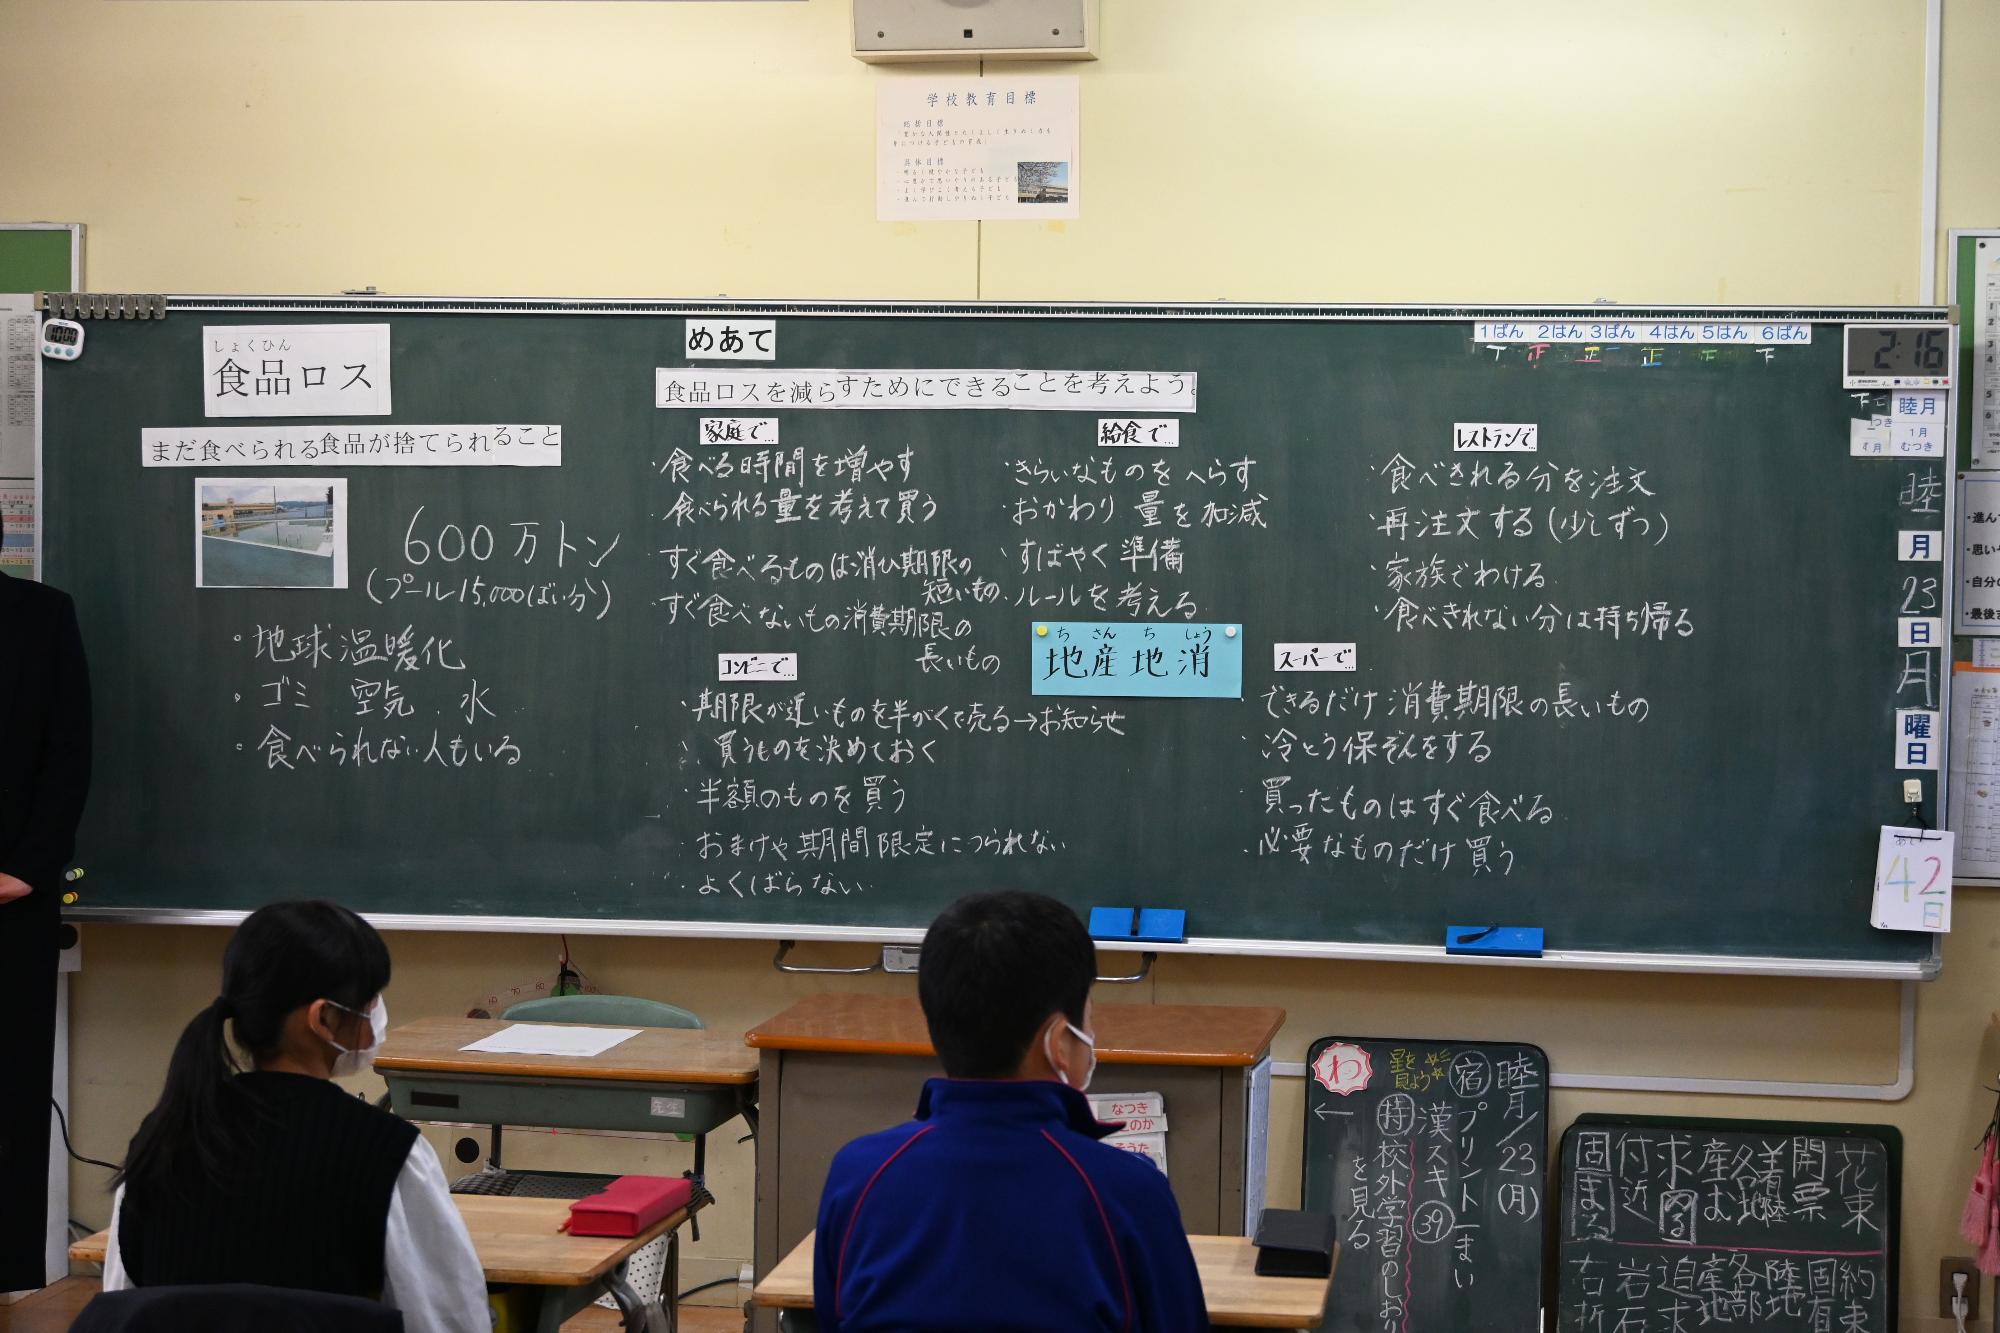 学校教育目標
総括目標
具体目標
10:00
しょくひん
食品ロス
まだ食べられる食品が捨てられること
600万トン
(プール15,000ばい分)
・地球温暖化
・ゴミ 空気 . 水
・食べられない人もいる
めあて
食品ロスを減らすためにできることを考えよう。
家庭で…
・食べる時間を増やす
・食べられる量を考えて買う
・すぐ食べるものは消ひ期限の
短いもの
・すぐ食べないもの消費期限の
長いもの
給食で…
・きらいなものをへらす
・おかわり 量を加減
・すばやく準備
・ルールを考える
ち さん ち しょう
地産地消
レストランで…
・食べきれる分を注文
・再注文する(少しずつ)
・家族でわける
・食べきれない分は持ち帰る
コンビニで…
・期限が近いものを半がくで売る→お知らせ
・買うものを決めておく
・半額のものを買う
・おまけや期間限定につられない
・よくばらない
スーパーで…
・できるだけ消費期限の長いもの
・冷とう保ぞんをする
・買ったものはすぐ食べる
・必要なものだけ買う
1ぱん 2はん 3ぱん 4はん 5はん 6ぱん
下 正 正 正 正 下
2:16
睦月
1月
むつき
睦
月
23
日
月
曜
日
あと
42
日
先生
なつき
このか
そうた
睦月/23(月)
宿 プリント一まい
漢スキ39
持 校外学習のしおり
を見る
星を
見よう
わ
←
花束
開票
着陸
各地
産む
求める
付近
固まる
約束
固有
陸地
各部
産地
追求
岩石
右折